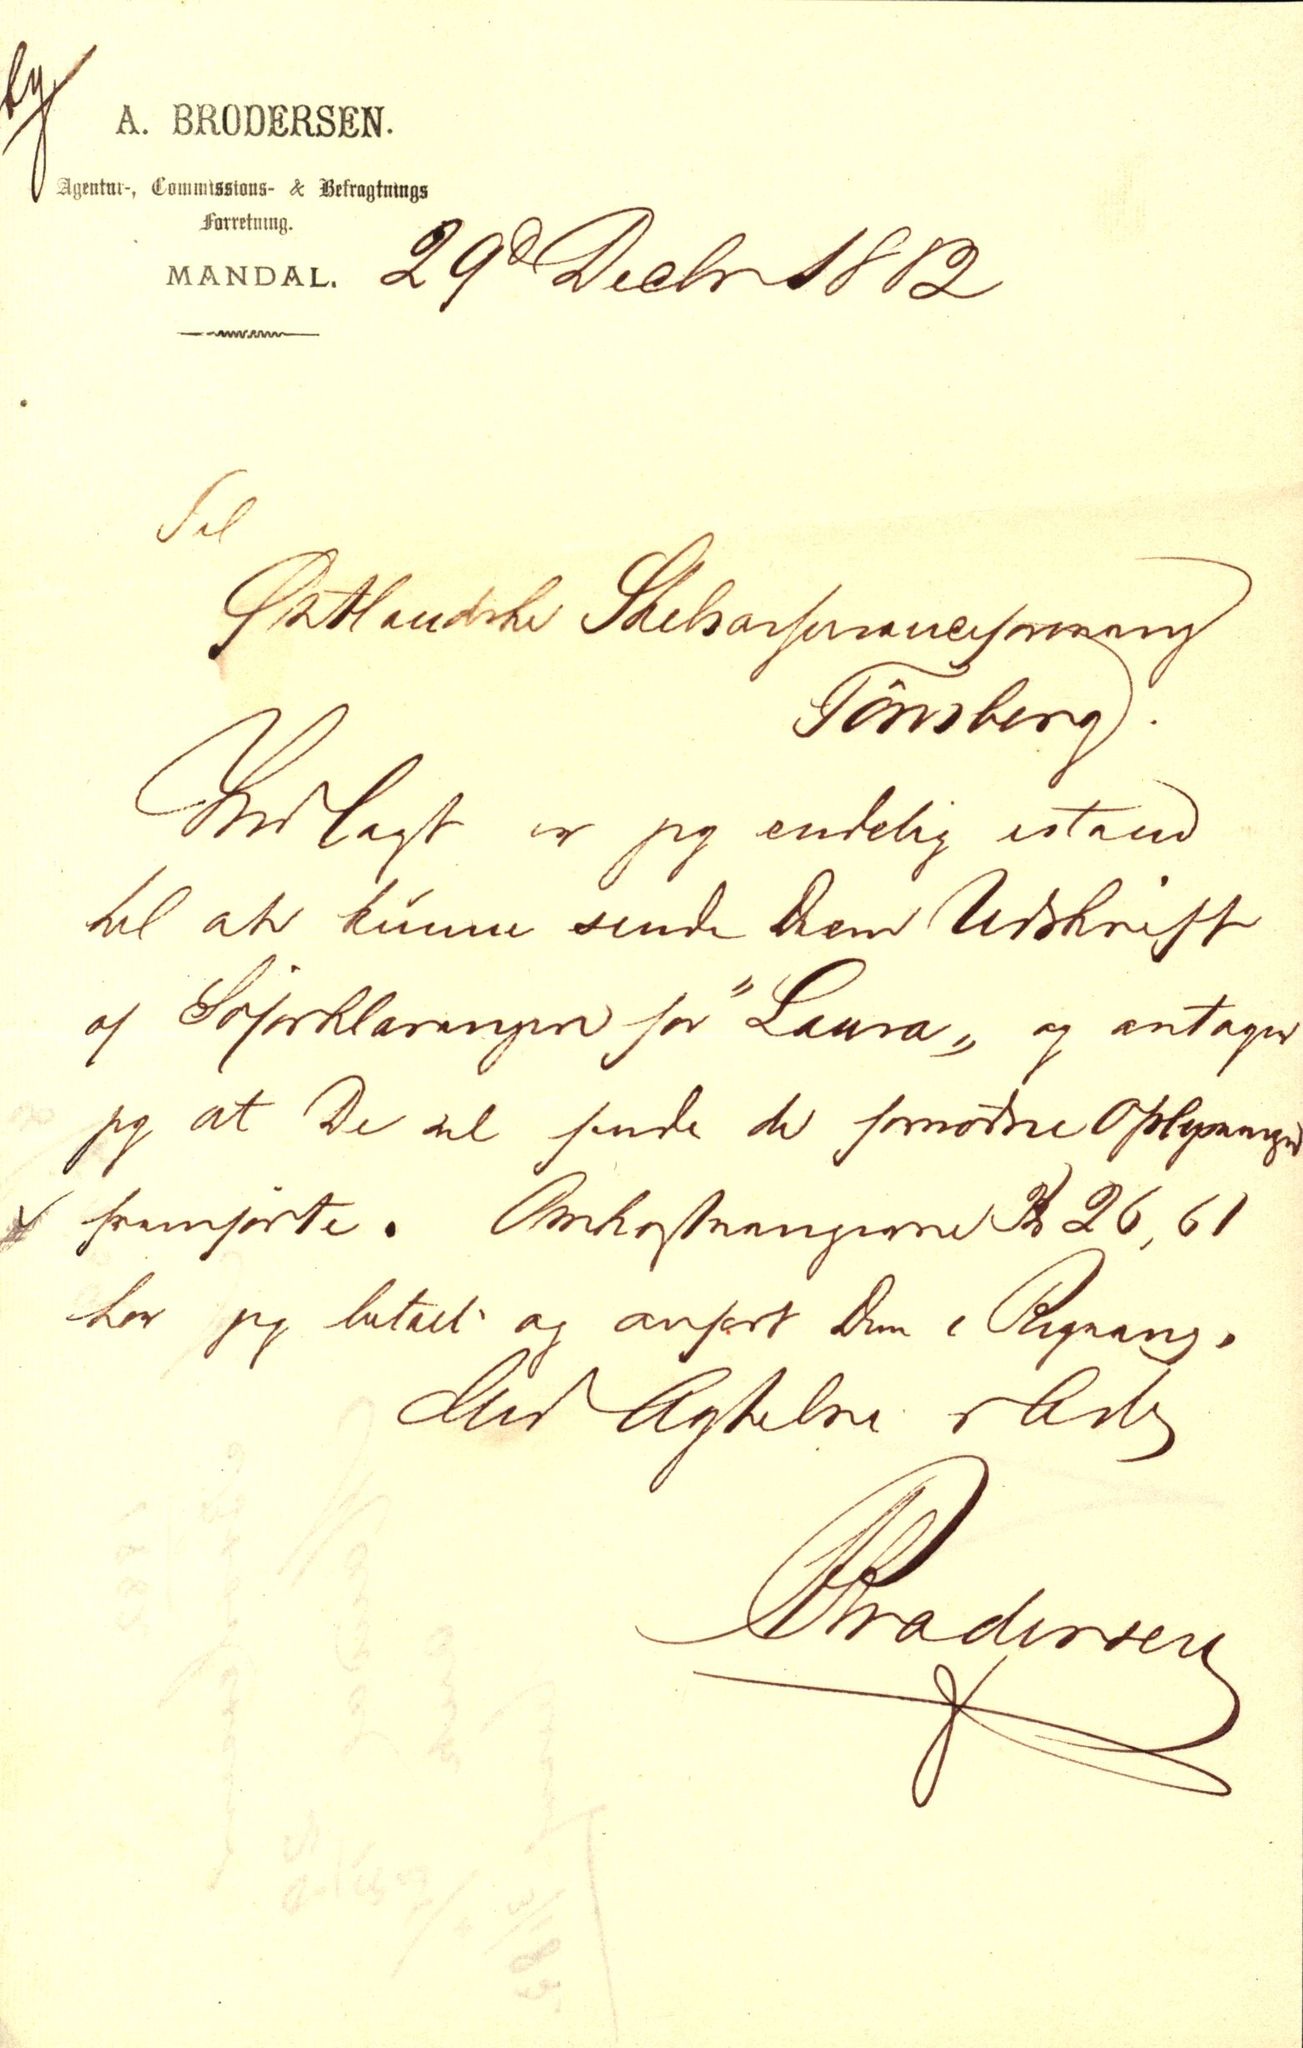 A. BRODERSEN.
Agentur-, Commissions- & Befragtnings
Forretning.
MANDAL. 29d Decbr 1882
Til
Østlandske Skibsassuranceforening
Tönsberg.
Indlagt er jeg endelig istand
til at kunne sende Dem Udskrift
af Söforklaringen for "Laura" og antager
jeg at De vil finde de fornödne Oplysninger
fremförte. Omkostningerne Kr 26,61
har jeg betalt og anfört Dem i Regning.
Med Agtelse
ABrodersen